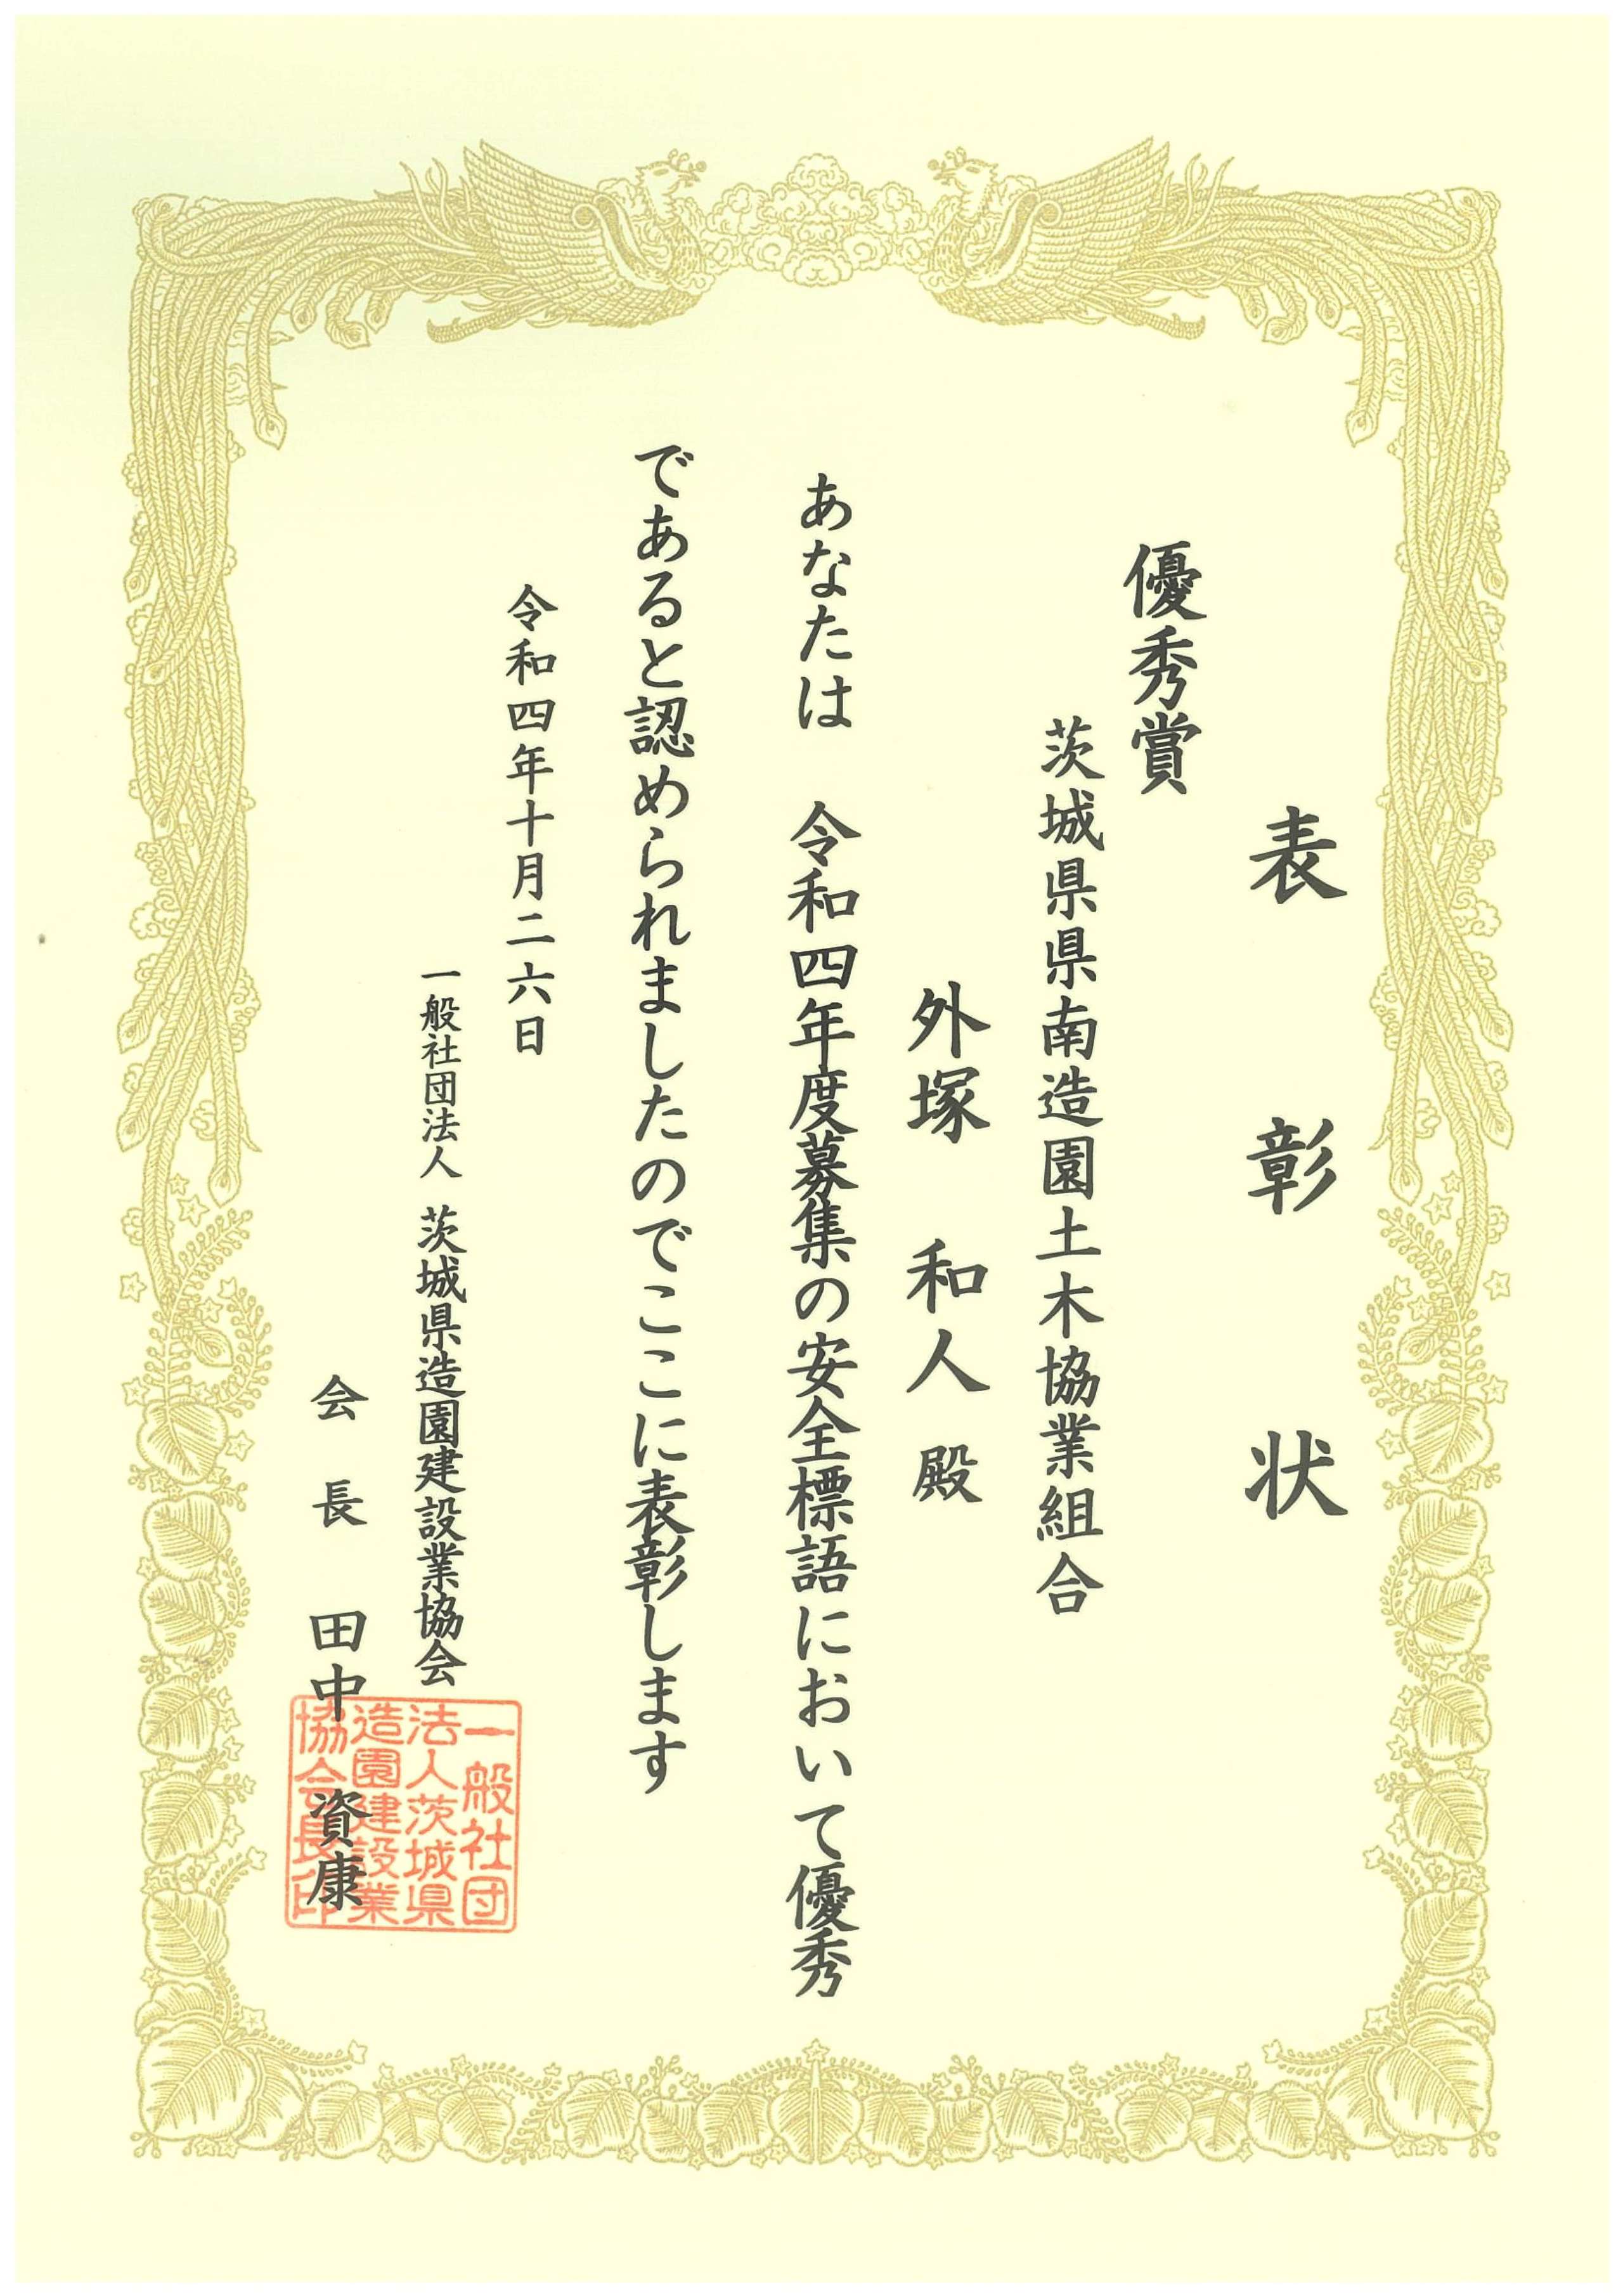 表彰状
優秀賞
茨城県県南造園土木協業組合
外塚 和人 殿
あなたは 令和四年度募集の安全標語において優秀
であると認められましたのでここに表彰します
令和四年十月二六日
一般社団法人 茨城県造園建設業協会
会長 田中 資康
一般社団
法人茨城県
造園建設業
協会長之印